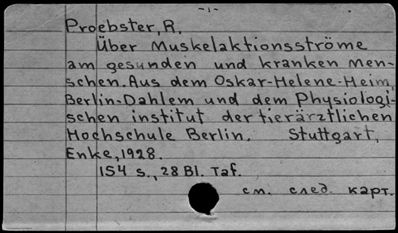 -1-
Proebster, R.
Über Muskelaktionsströme
am gesunden und kranken Men-
schen. Aus dem Oskar-Helene-Heim,
Berlin-Dahlem und dem Physiologi-
schen institut der tierärztlichen
Hochschule Berlin. Stuttgart,
Enke, 1928.
154 s., 28 Bl. Taf.
см. след. карт.